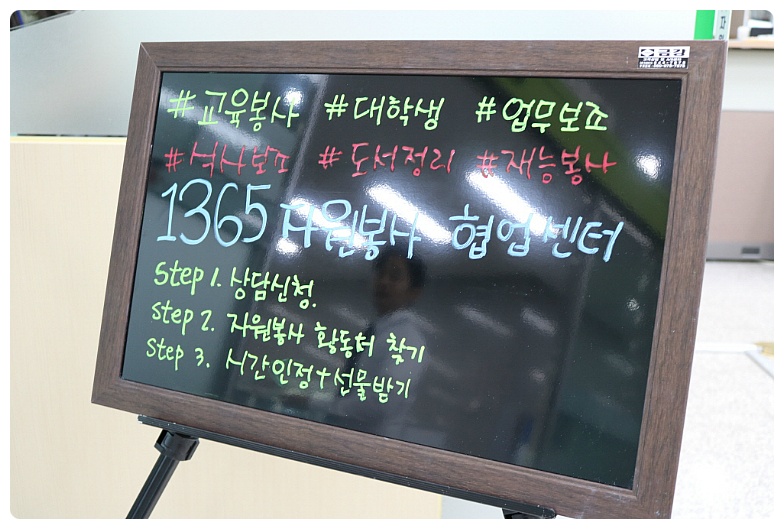 #교육봉사 #대학생 #업무보조
#석사보조 #도서정리 #재능봉사
1365 자원봉사 협업센터
Step 1. 상담신청.
Step 2. 자원봉사 활동처 찾기
Step 3. 시간인정+선물받기